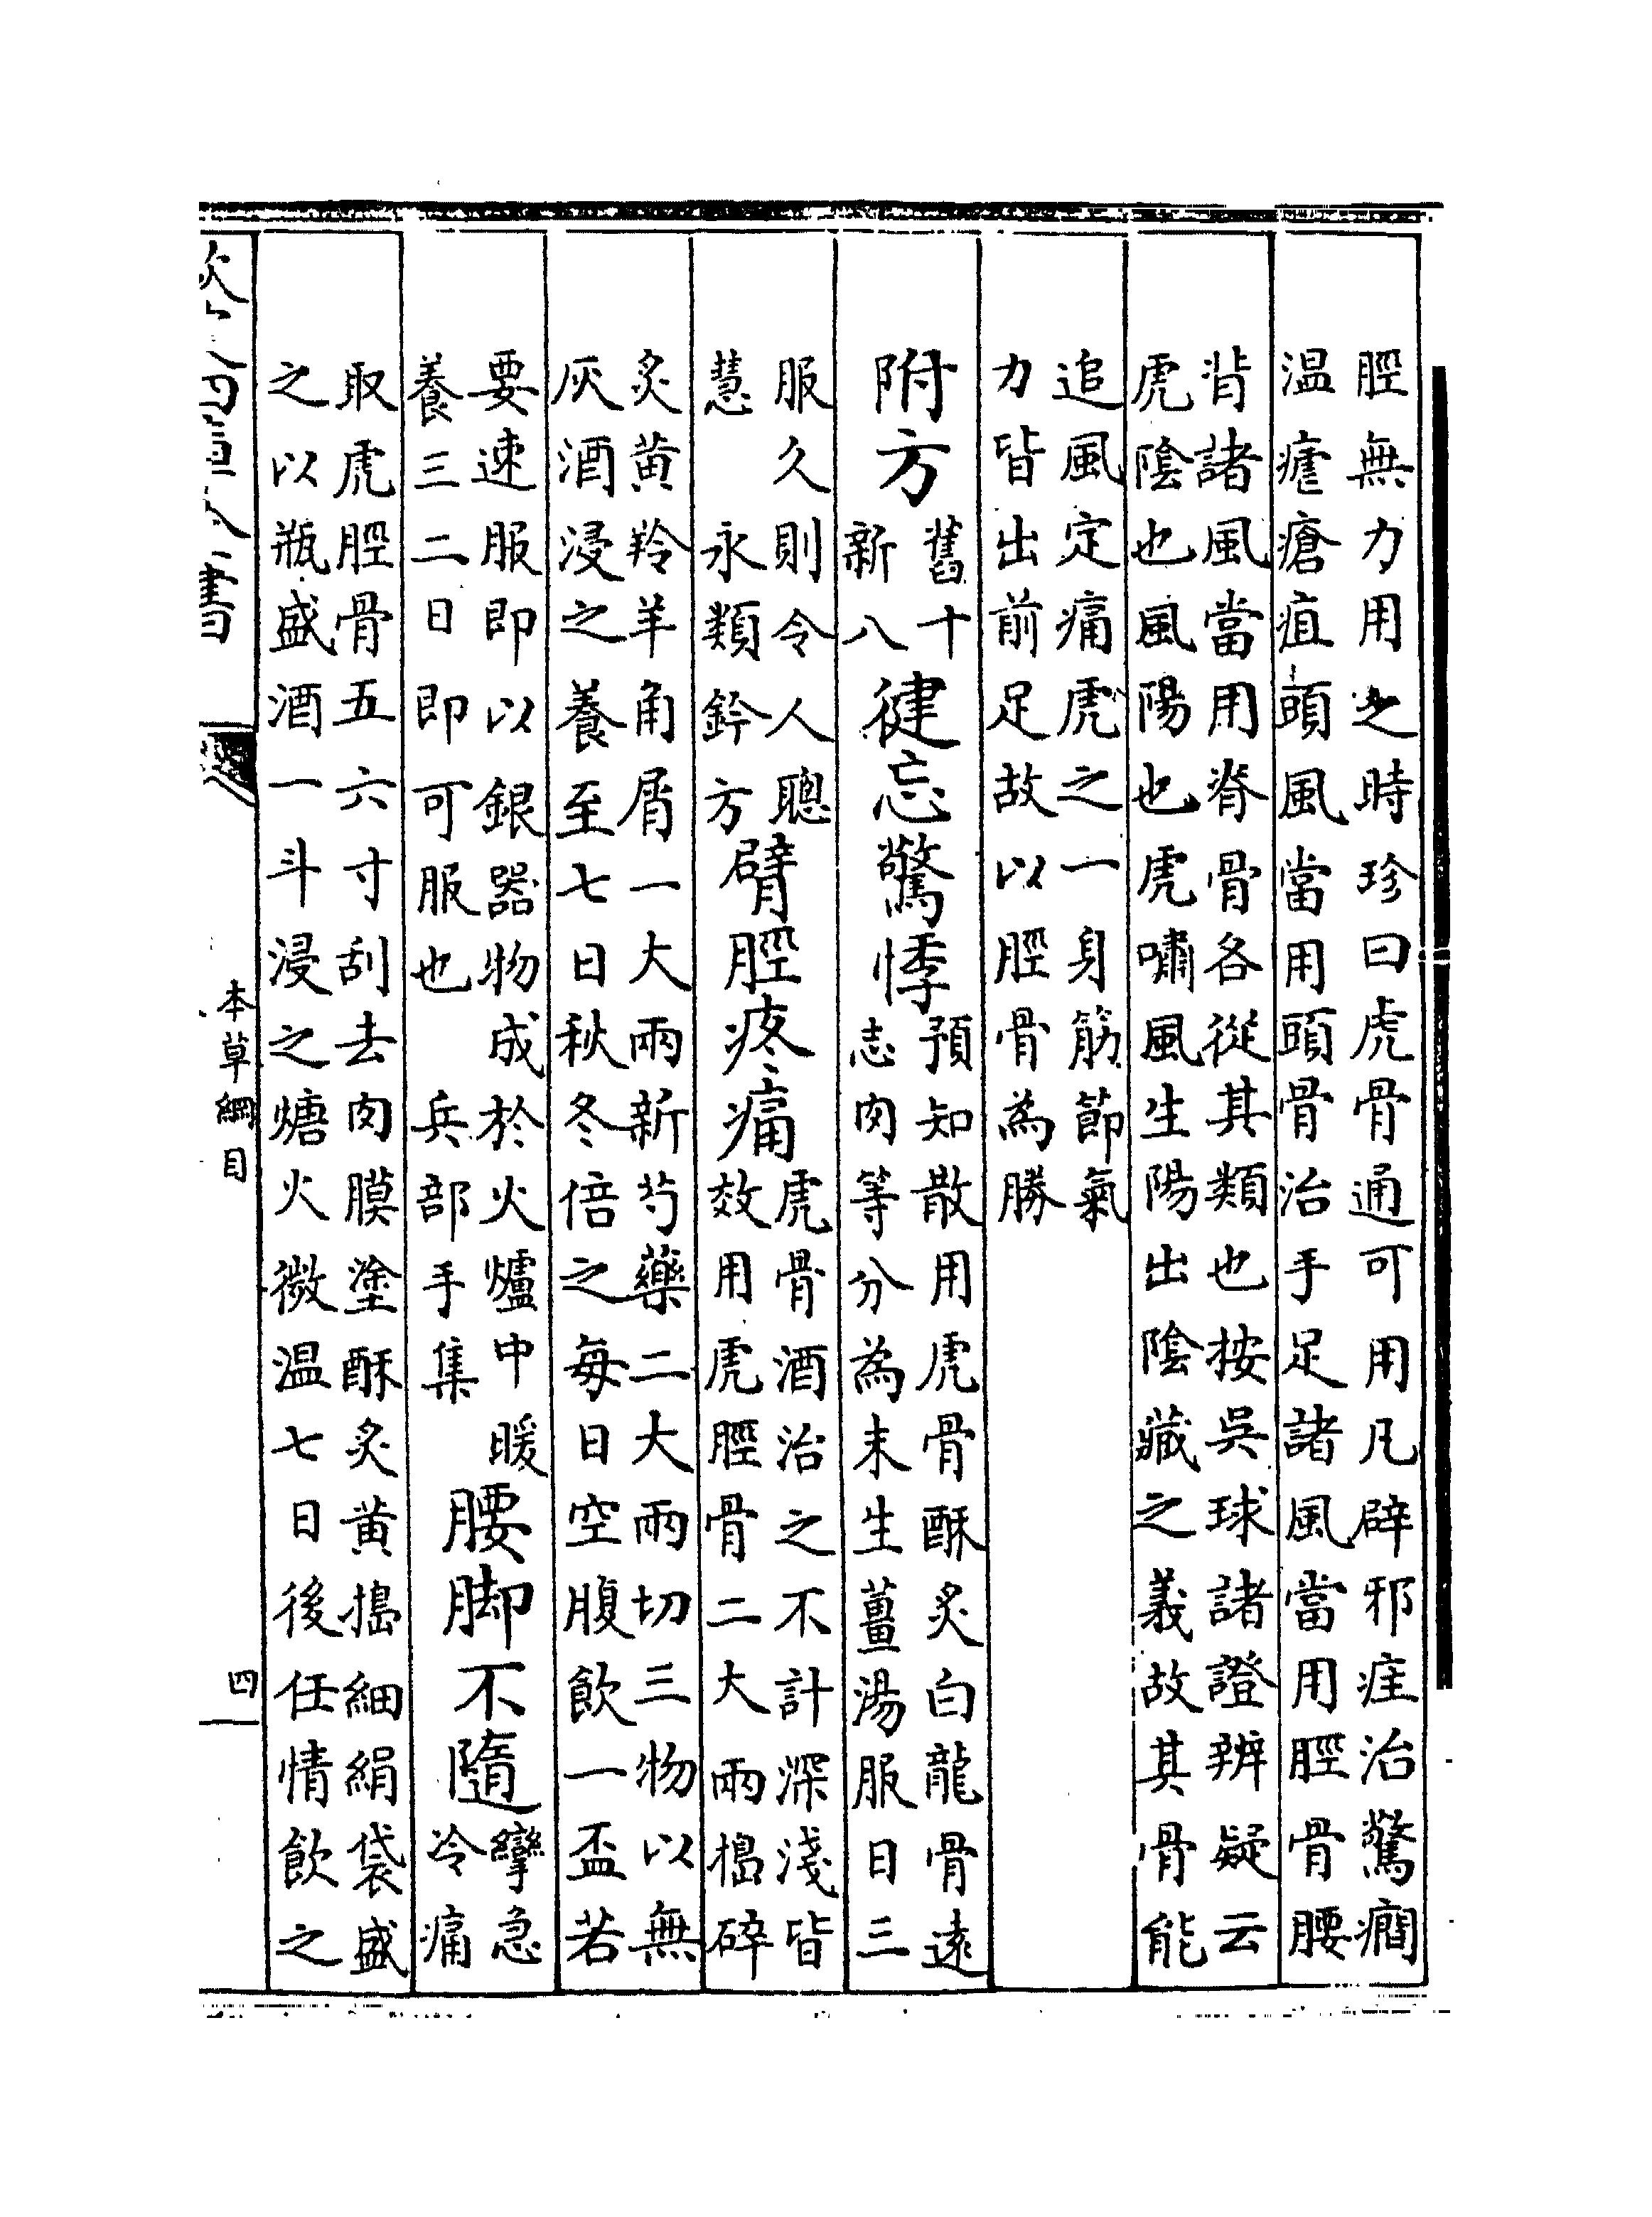 脛無力用之時珍曰虎骨通可用凡辟邪疰治驚癇
温瘧瘡疽頭風當用頭骨治手足諸風當用脛骨腰
背諸風當用脊骨各從其類也按吳球諸證辨疑云
虎陰也風陽也虎嘯風生陽出陰藏之義故其骨能
追風定痛虎之一身筋節氣
力皆出前足故以脛骨為勝
附方
舊十
新八
健忘驚悸
預知散用虎骨酥炙白龍骨遠
志肉等分為末生薑湯服日三
服久則令人聰
慧 永類鈐方
臂脛疼痛
虎骨酒治之不計深淺皆
效用虎脛骨二大兩搗碎
炙黄羚羊角屑一大兩新芍藥二大兩切三物以無
灰酒浸之養至七日秋冬倍之每日空腹飲一盃若
要速服即以銀器物成於火爐中暖
養三二日即可服也 兵部手集
腰脚不隨
攣急
冷痛
取虎脛骨五六寸刮去肉膜塗酥炙黄搗細絹袋盛
之以瓶盛酒一斗浸之煻火微温七日後任情飲之
四庫全書
本草綱目
四